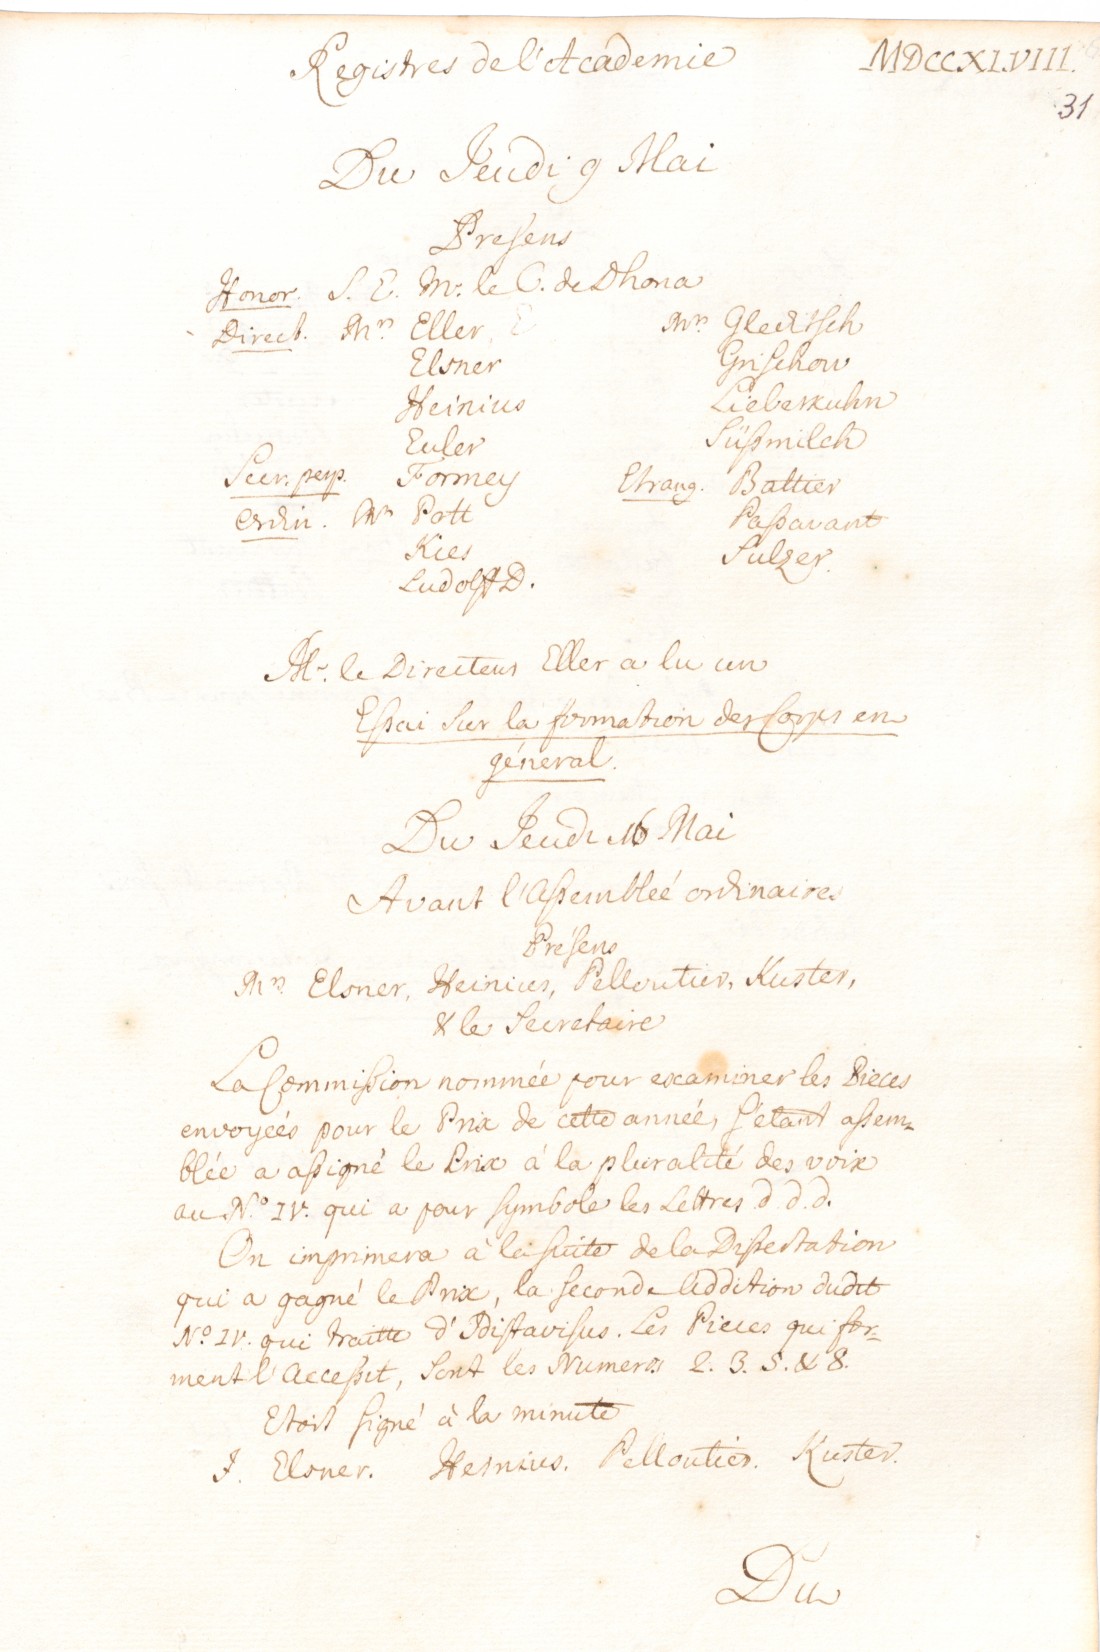 Registres de l'Academie
MDCCXLVIII.
31
Du Jeudi 9 Mai
Presens
Honor. S. E. Mr. le C. de Dhona
Direct. Mrs Eller
Elsner
Heinius
Euler
Secr. perp. Formey
Ordin. Mrs Pott
Kies
Ludolff D.
Mrs Gleditsch
Grischow
Lieberkuhn
Süssmilch
Etrang. Battier
Passavant
Sulzer.
Mr. le Directeur Eller a lu un
Essai sur la formation des Corps en
géneral.
Du Jeudi 16 Mai
Avant l'Assembleé ordinaire
Présens
Mrs Elsner, Heinius, Pelloutier, Kuster,
& le Secretaire
La Commission nommée pour examiner les Pieces
envoyées pour le Prix de cette année, s'etant assem-
blée a assigné le Prix à la pluralité des voix
au N.o IV. qui a pour symbole les Lettres d. d. d.
On imprimera à la suite de la Dissertation
qui a gagné le Prix, la seconde Addition dudit
No IV. qui traitte d'Idistavisus. Les Pieces qui for-
ment l'Accessit, sont les Numeros 2. 3. 5. & 8.
Etoit signé à la minute
J. Elsner. Heinius. Pelloutier. Kuster.
Du